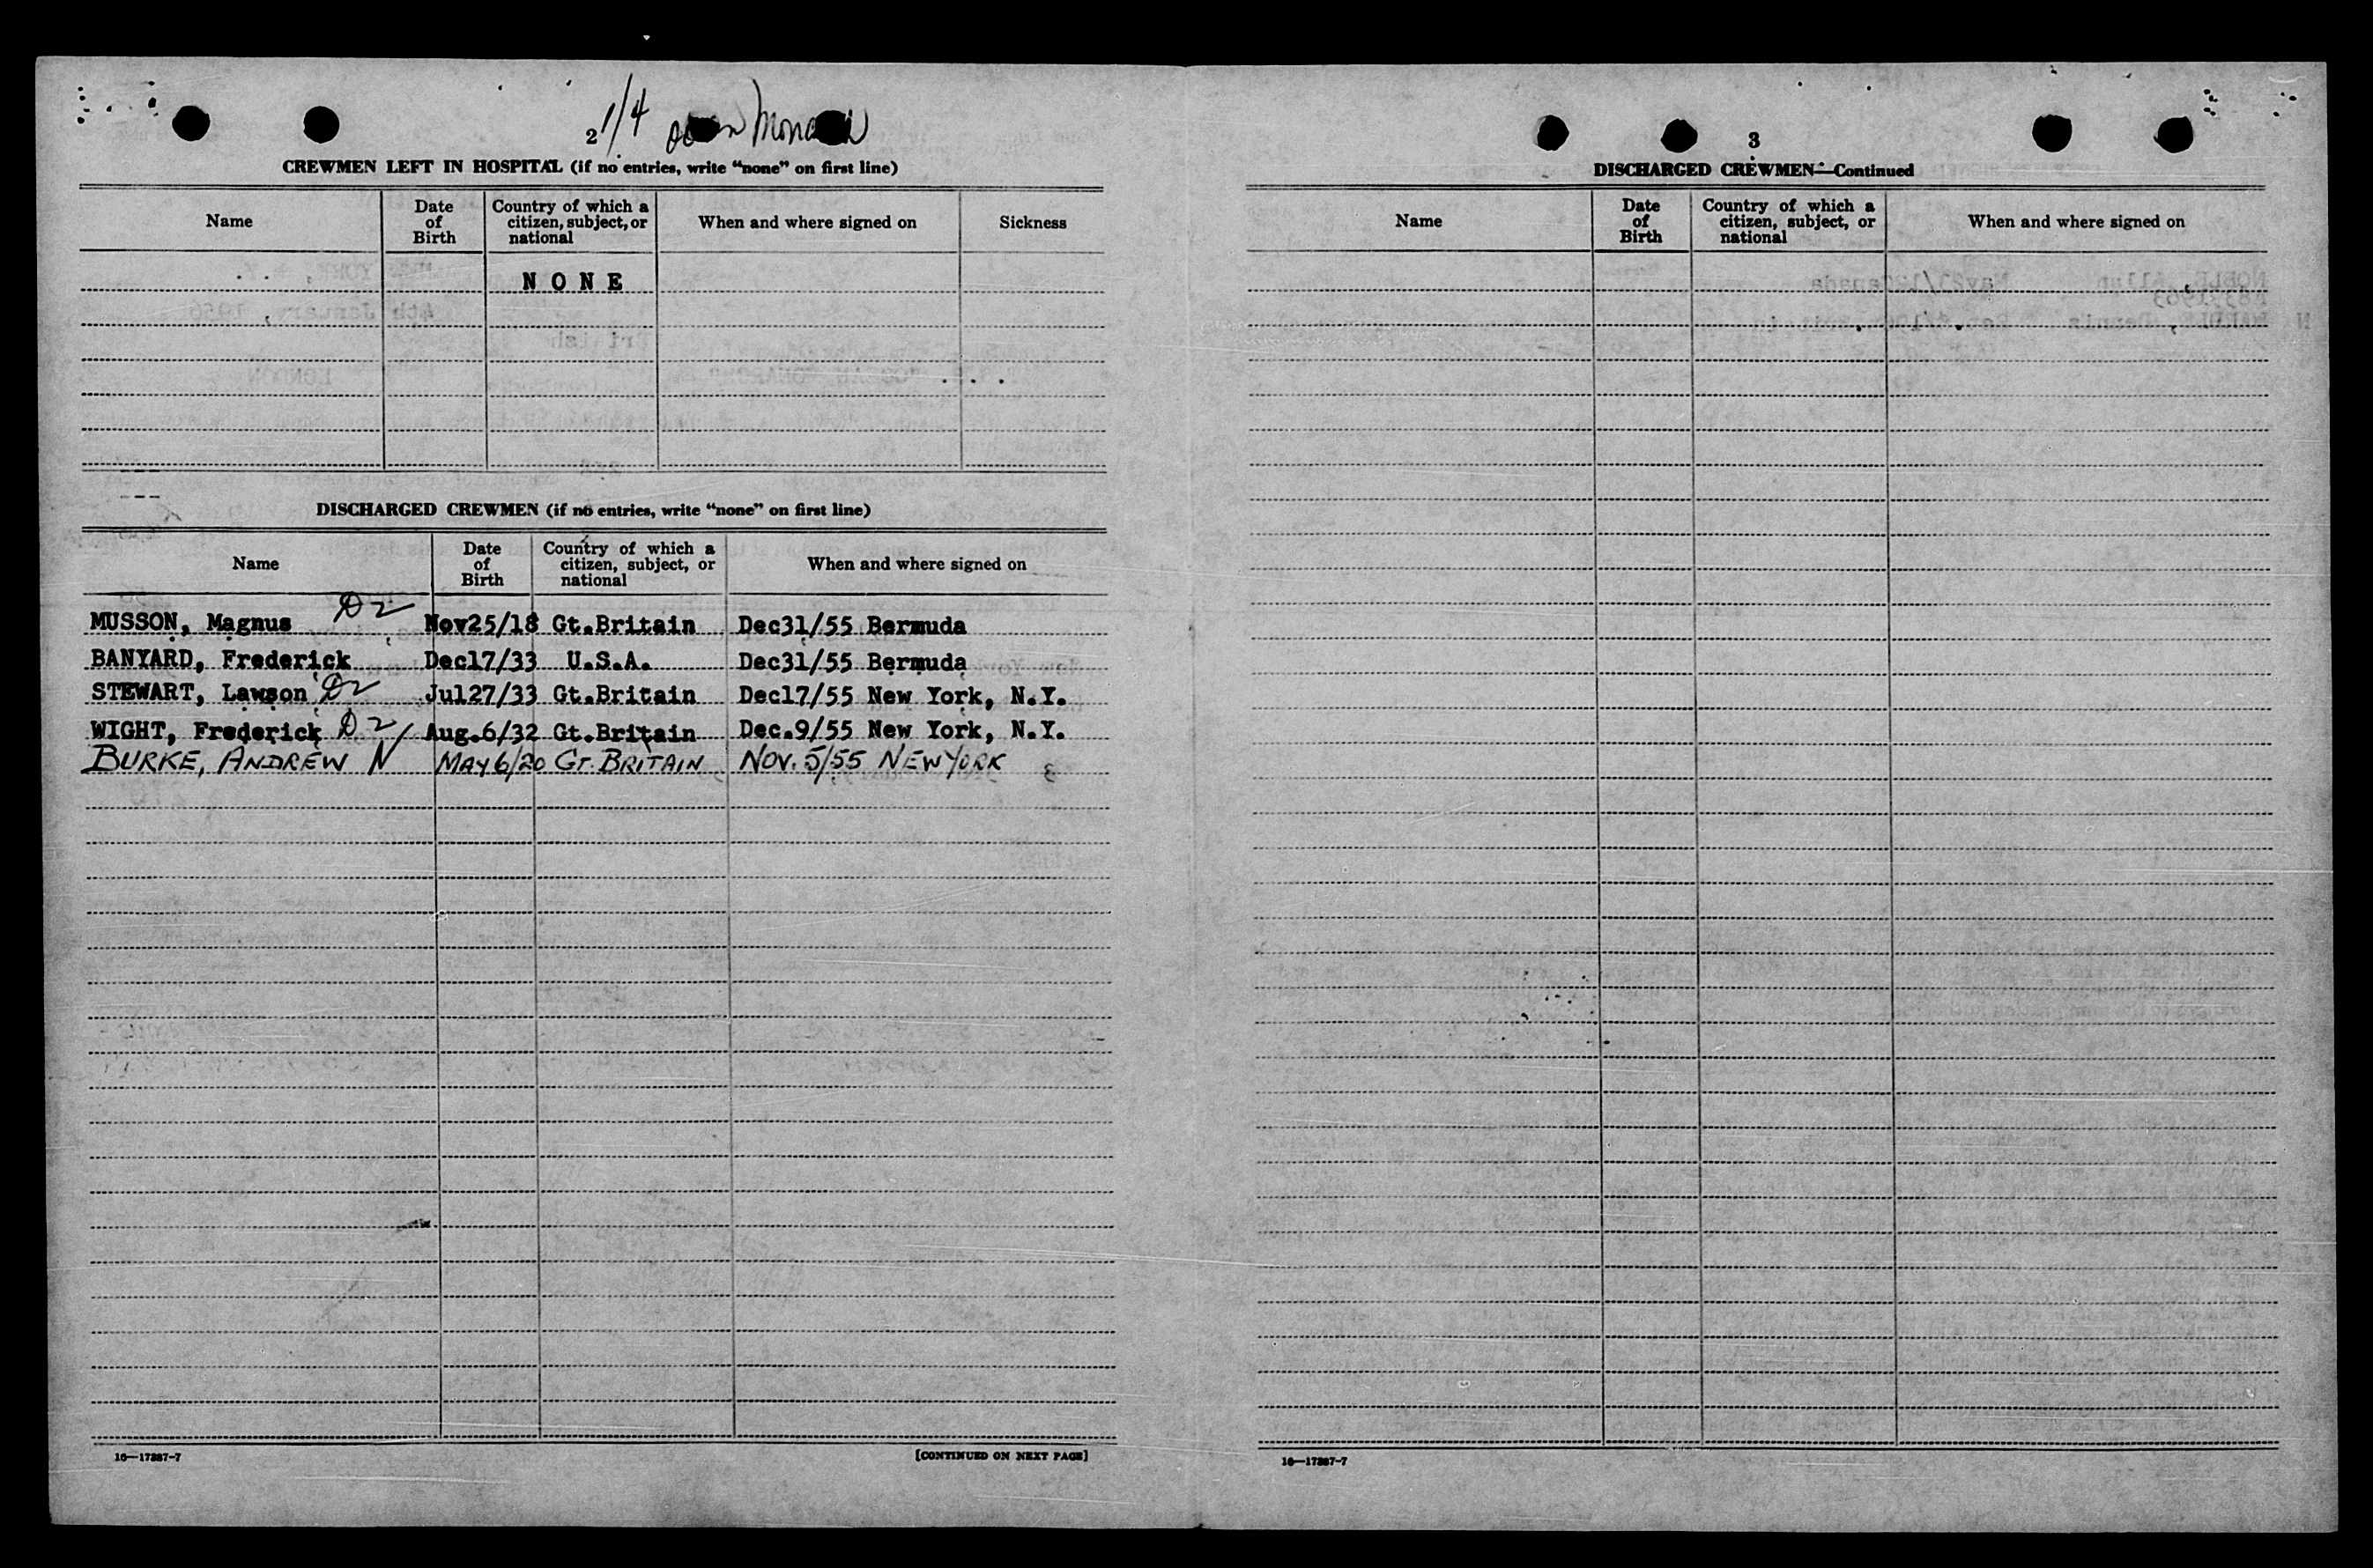 2 1/4 Ocean Monarch
CREWMEN LEFT IN HOSPITAL (if no entries, write "none" on first line)
Name Date of Birth Country of which a citizen, subject, or national When and where signed on Sickness
N O N E
DISCHARGED CREWMEN (if no entries, write "none" on first line)
Name Date of Birth Country of which a citizen, subject, or national When and where signed on
MUSSON, Magnus D2 Nov25/18 Gt.Britain Dec31/55 Bermuda
BANYARD, Frederick Dec17/33 U.S.A. Dec31/55 Bermuda
STEWART, Lawson D2 Jul27/33 Gt.Britain Dec17/55 New York, N.Y.
WIGHT, Frederick D2 Aug.6/32 Gt.Britain Dec.9/55 New York, N.Y.
BURKE, ANDREW N MAY 6/20 GT. BRITAIN NOV. 5/55 NEW YORK
16—17387-7 [CONTINUED ON NEXT PAGE]
3
DISCHARGED CREWMEN—Continued
Name Date of Birth Country of which a citizen, subject, or national When and where signed on
16—17387-7